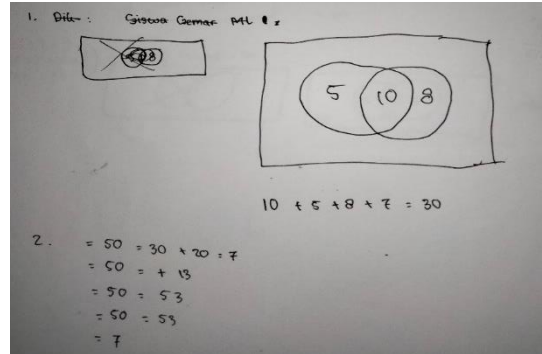 1. Dik : Siswa Gemar
5 8
5 10 8
10 + 5 + 8 + 7 = 30
2. = 50 = 30 + 20 = 7
= 50 = + 13
= 50 = 53
= 50 = 53
= 7